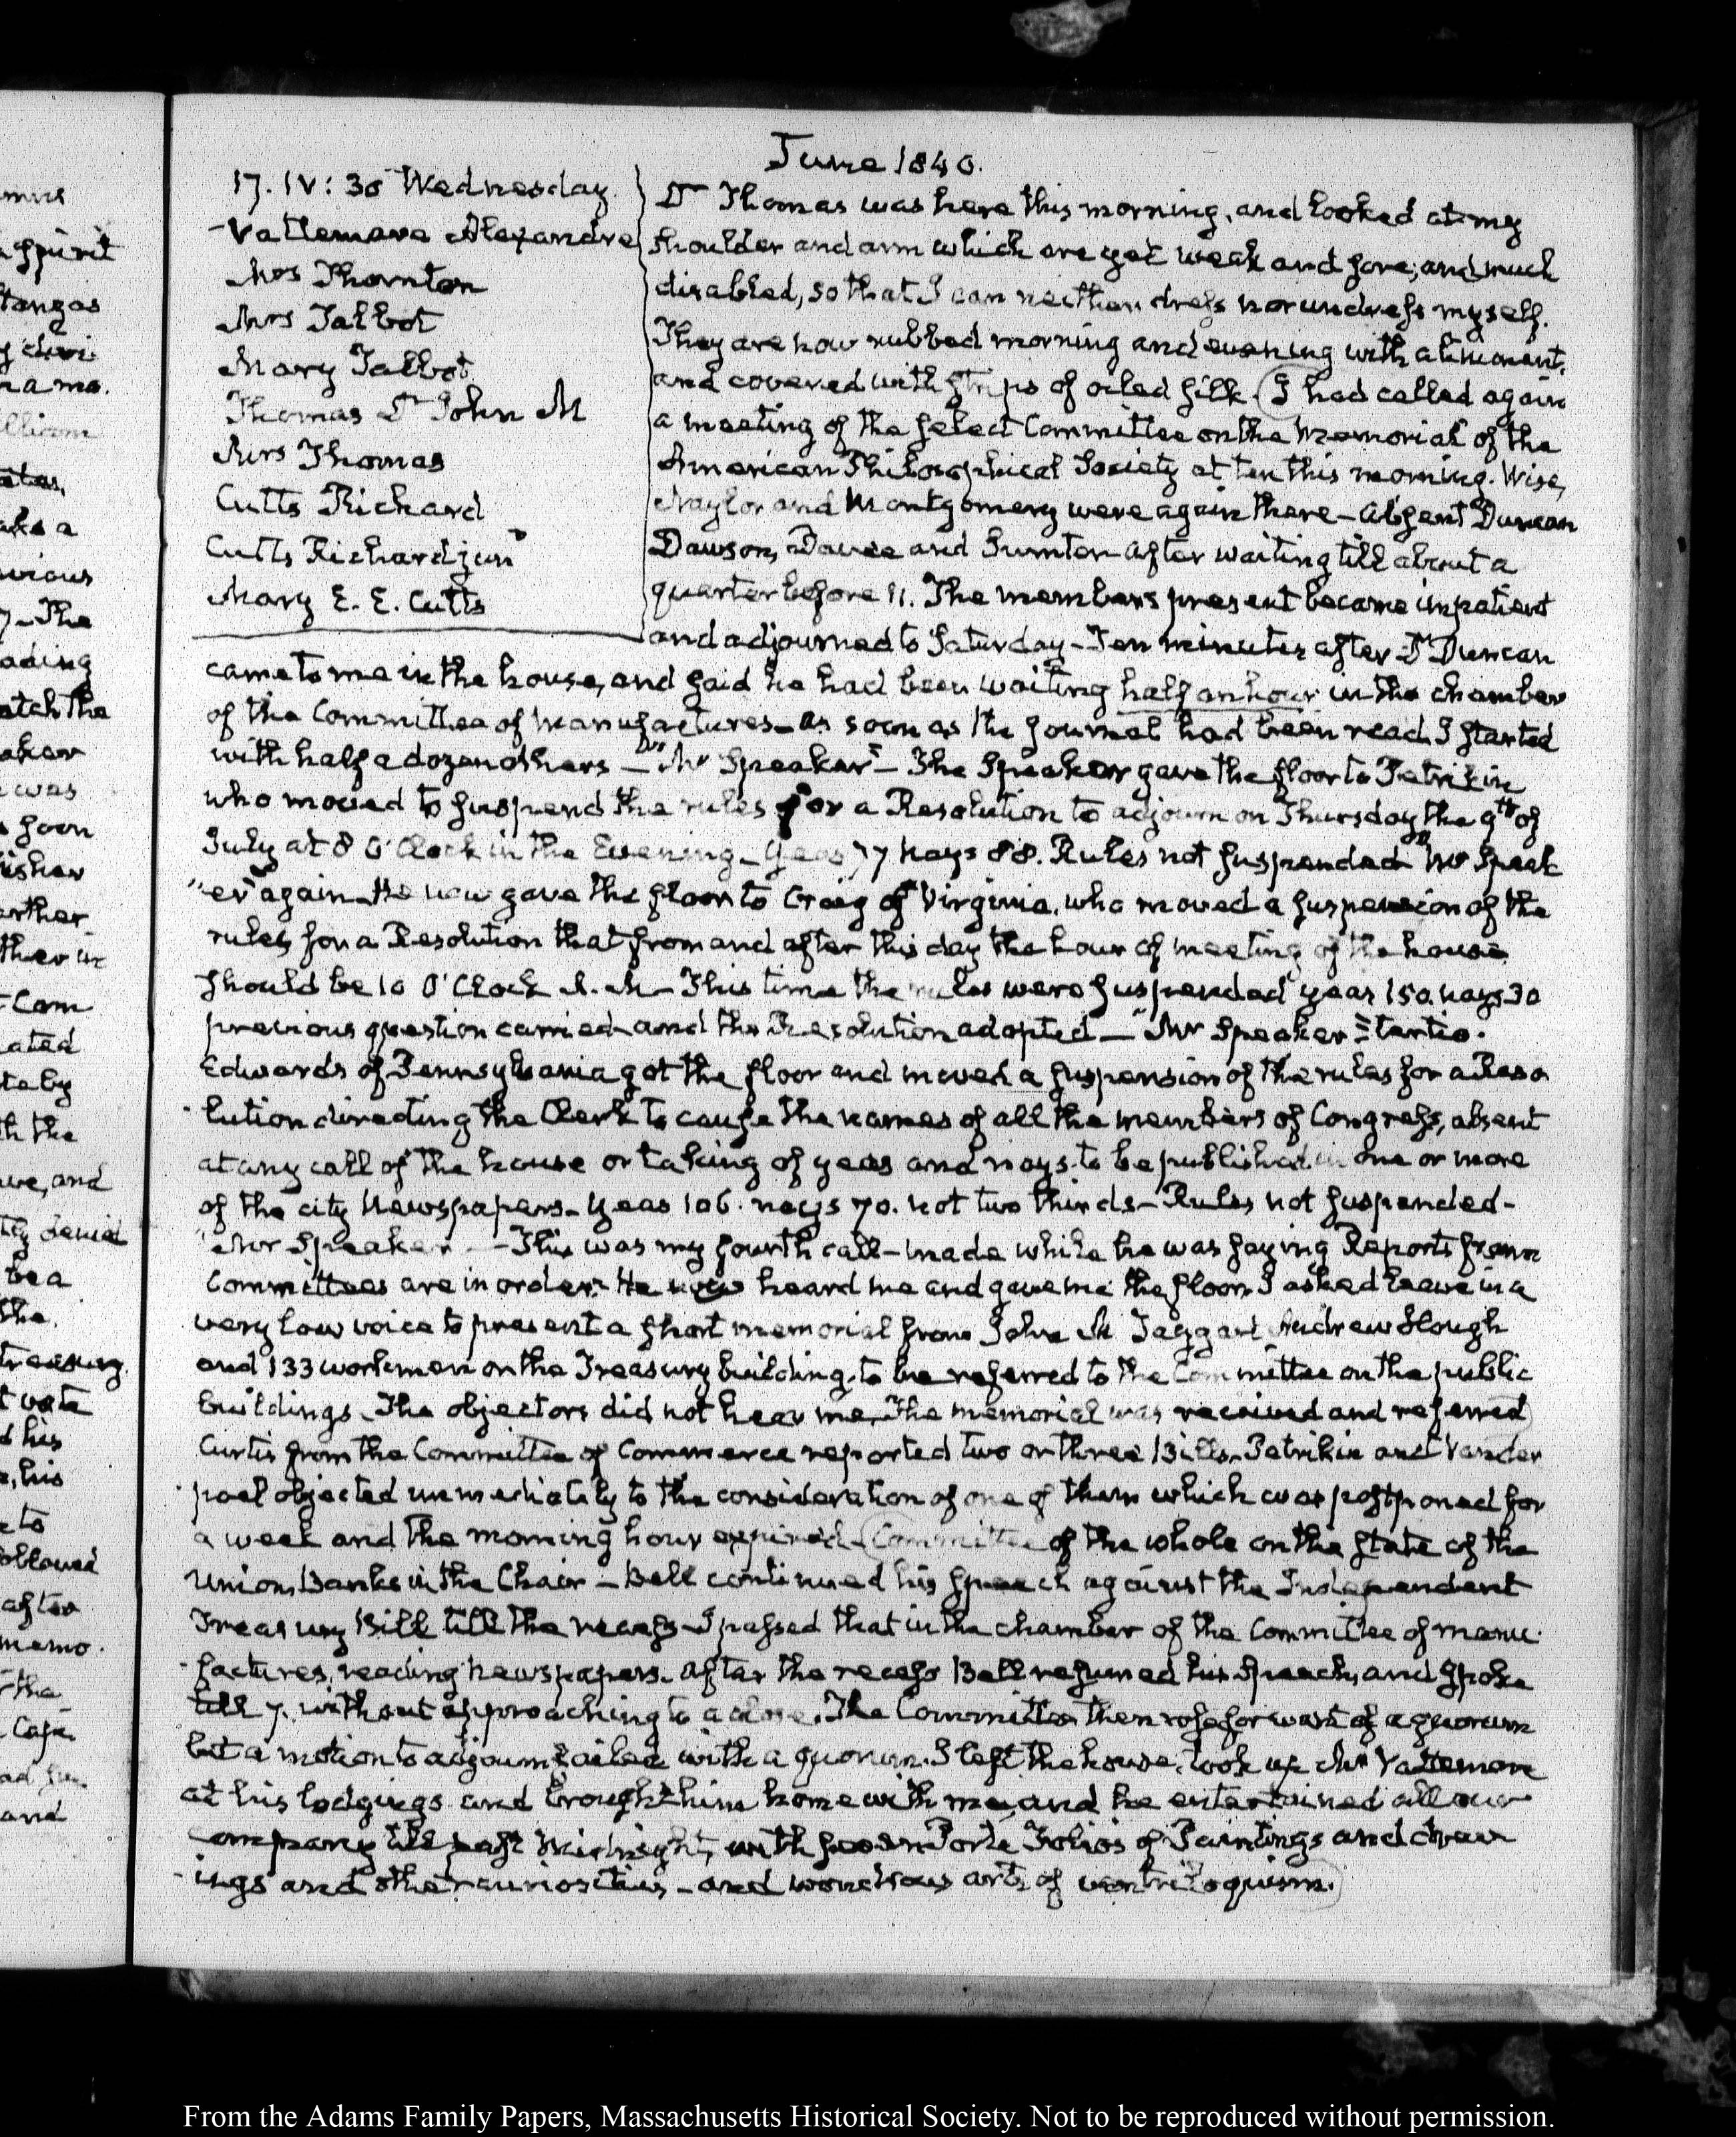 June 1840.
17. IV: 30 Wednesday.
Vattemare Alexandre
Mrs Thornton
Mrs Talbot
Mary Talbot
Thomas Dr John M
Mrs Thomas
Cutts Richard
Cutts Richard junr
Mary E. E. Cutts
Dr Thomas was here this morning, and looked at my
shoulder and arm which are yet weak and sore, and much
disabled, so that I can neither dress nor undress myself.
They are now rubbed morning and evening with a liniment,
and covered with strips of oiled silk. I had called again
a meeting of the select Committee on the Memorial of the
American Philosophical Society at ten this morning. Wise,
Naylor and Montgomery were again there – absent Duncan
Dawson, Davee and Sumter – after waiting till about a
quarter before 11. The members present became impatient
and adjourned to Saturday – Ten minutes after Dr Duncan
came to me in the house, and said he had been waiting half an hour in the chamber
of the Committee of Manufactures – as soon as the Journal had been read I started
with half a dozen others – "Mr Speaker" – The Speaker gave the floor to Petrikin
who moved to suspend the rules for a Resolution to adjourn on Thursday the 9th of
July at 8 O'Clock in the Evening – Yeas 77 Nays 88. Rules not suspended "Mr Speak
"er" again – He now gave the floor to Craig of Virginia, who moved a suspension of the
rules for a Resolution that from and after this day the hour of meeting of the house
should be 10 O'Clock A.M – This time the rules were suspended yeas 150. nays 30
previous question carried – and the Resolution adopted – "Mr Speaker" – tertio.
Edwards of Pennsylvania got the floor and moved a suspension of the rules for a Reso
lution directing the Clerk to cause the names of all the members of Congress, absent
at any call of the house or taking of yeas and nays to be published in one or more
of the city Newspapers – Yeas 106. nays 70. not two thirds – Rules not suspended –
"Mr Speaker – This was my fourth call – made while he was saying Reports from
Committees are in order – He now heard me and gave me the floor. I asked leave in a
very low voice to present a short memorial from John M Andrew Slough
and 133 workmen on the Treasury building, to be referred to the Committee on the public
buildings. The objectors did not hear me. The memorial was received and referred
Curtis from the Committee of Commerce reported two or three Bills. Petrikin and Vander
poel objected immediately to the consideration of one of them which was postponed for
a week and the morning hour expired – Committee of the whole on the state of the
Union, Banks in the Chair – Bell continued his speech against the Independent
Treasury Bill till the recess – I passed that in the chamber of the Committee of manu
factures, reading newspapers. After the recess Bell resumed his Speech, and spoke
till 7. without approaching to a close. The Committee then rose for want of a quorum
but a motion to adjourn failed with a quorum. I left the house, took up Mr Vattemare
at his lodgings and brought him home with me, and he entertained all our
company till past midnight, with his Porte Folios of Paintings and draw
ings and other curiosities – and wondrous arts of ventriloquism.
From the Adams Family Papers, Massachusetts Historical Society. Not to be reproduced without permission.